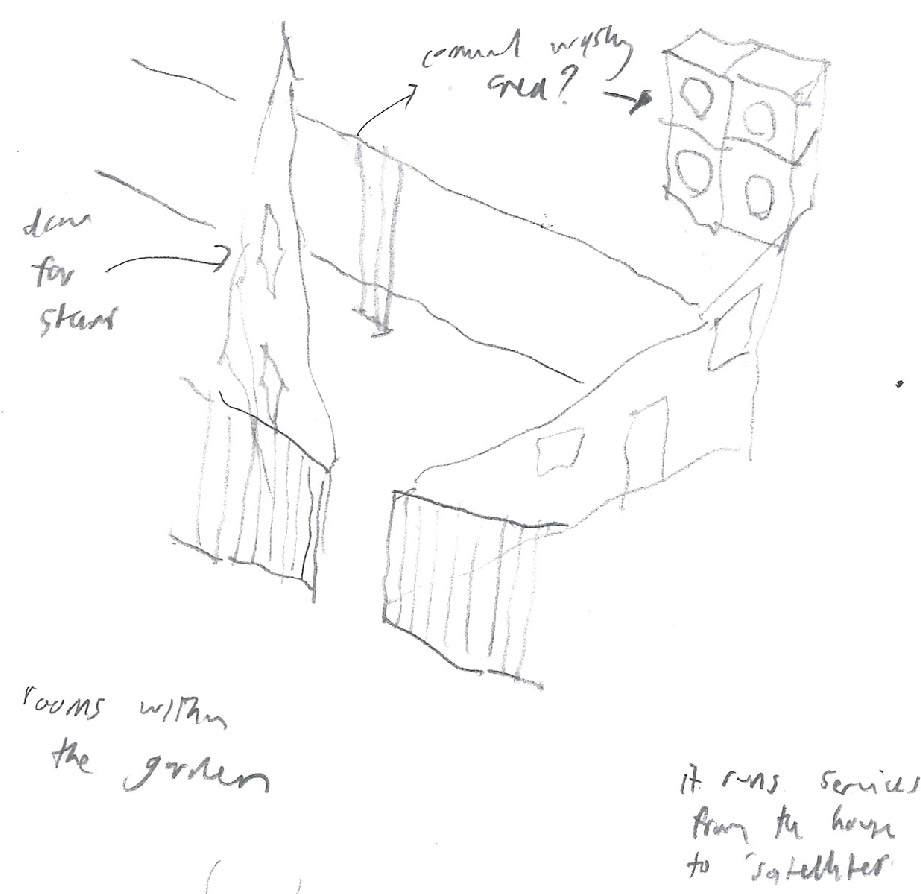 comunal washing
area?
for
rooms within
the garden
it runs services
from the house
to 'satellites'